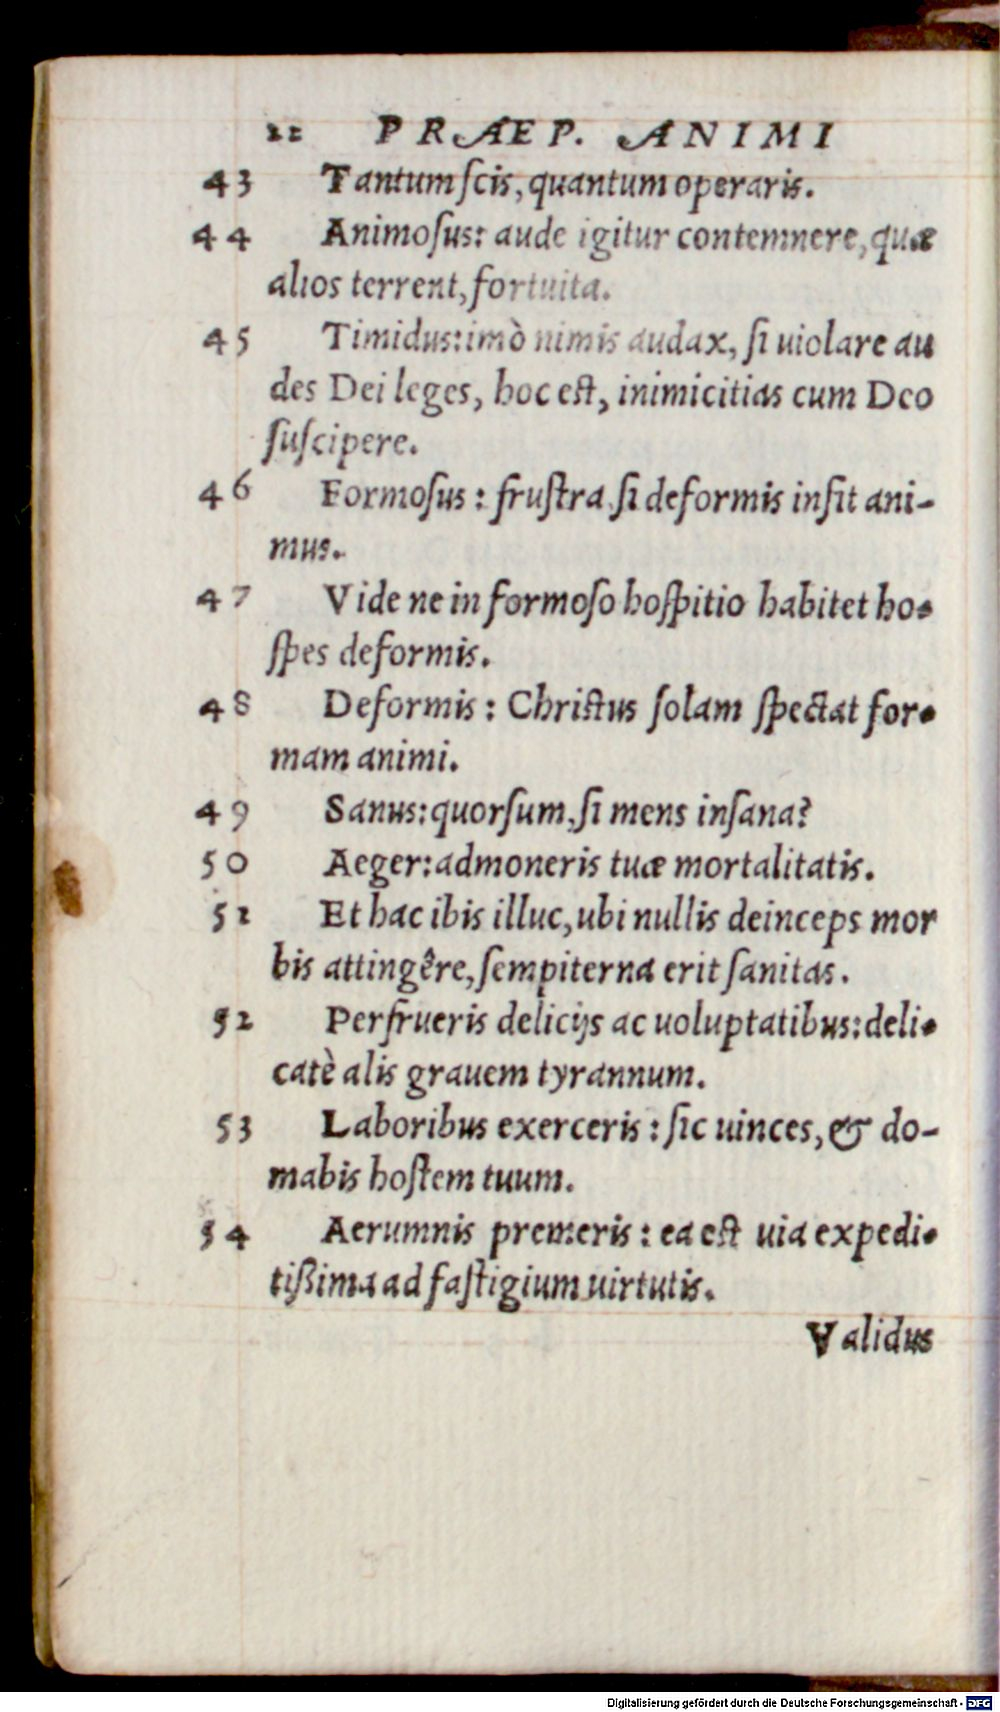 22 PRAEP. ANIMI
43 Tantum ſcis, quantum operaris.
44 Animoſus: aude igitur contemnere, quæ
alios terrent, fortuita.
45 Timidus: imò nimis audax, ſi uiolare au
des Dei leges, hoc eſt, inimicitias cum Deo
ſuſcipere.
46 Formoſus: fruſtra, ſi deformis inſit ani-
mus.
47 Vide ne in formoſo hoſpitio habitet ho-
ſpes deformis.
48 Deformis: Chriſtus ſolam ſpectat for-
mam animi.
49 Sanus: quorſum, ſi mens inſana?
50 Aeger: admoneris tuæ mortalitatis.
51 Et hac ibis illuc, ubi nullis deinceps mor
bis attingêre, ſempiterna erit ſanitas.
52 Perfrueris delicijs ac uoluptatibus: deli-
catè alis grauem tyrannum.
53 Laboribus exerceris: ſic uinces, & do-
mabis hoſtem tuum.
54 Aerumnis premeris: ea eſt uia expedi-
tißima ad faſtigium uirtutis.
Validus
Digitalisierung gefördert durch die Deutsche Forschungsgemeinschaft - DFG